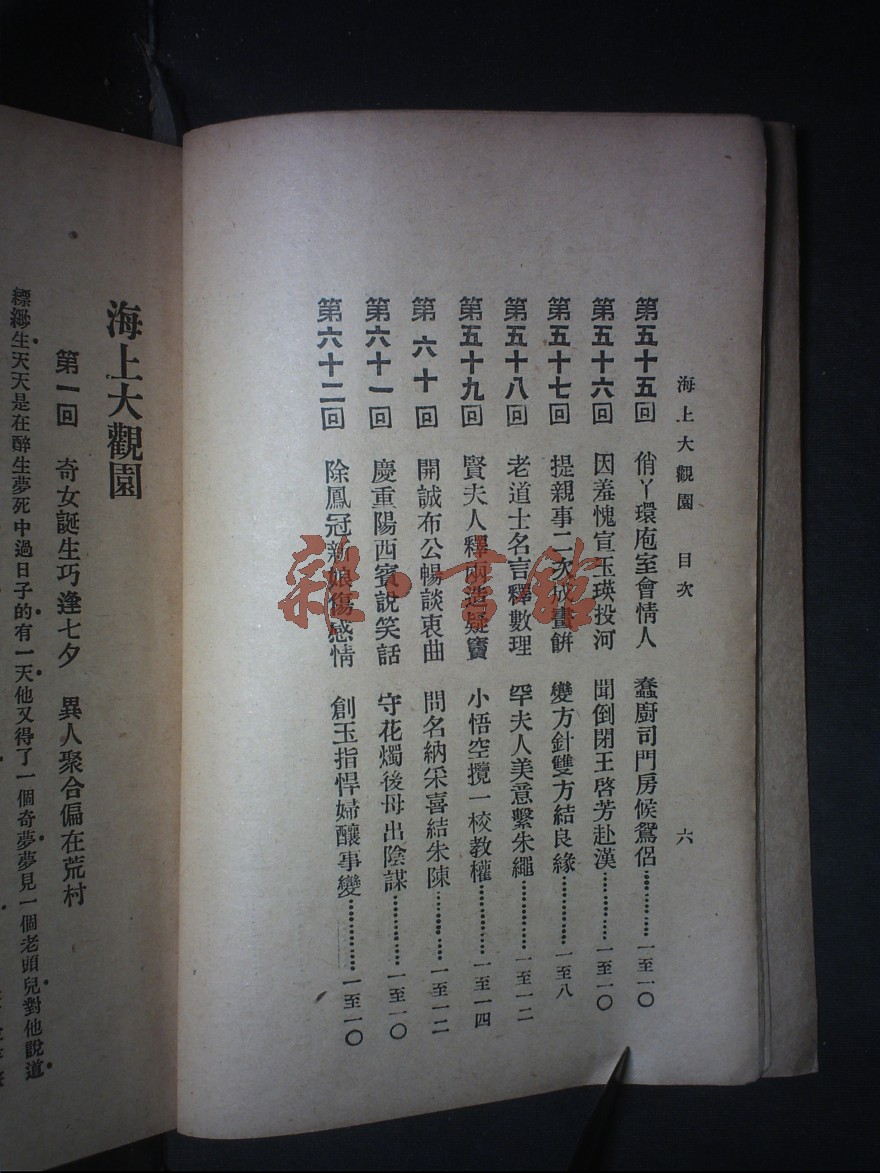 海上大觀園 目次 六
第五十五回 俏丫環庖室會情人 蠢廚司門房候鴛侶…………一至一〇
第五十六回 因羞愧宣玉瑛投河 聞倒閉王啓芳赴漢…………一至一〇
第五十七回 提親事二次成畫餅 變方針雙方結良緣…………一至八
第五十八回 老道士名言釋數理 罕夫人美意繫朱繩…………一至一二
第五十九回 賢夫人釋兩造疑竇 小悟空攬一校教權…………一至一四
第六十回 開誠布公暢談衷曲 問名納采喜結朱陳…………一至一二
第六十一回 慶重陽西賓說笑話 守花燭後母出陰謀…………一至一〇
第六十二回 除鳳冠新娘傷感情 創玉指悍婦釀事變…………一至一〇
雜·書館
海上大觀園
第一回 奇女誕生巧逢七夕 異人聚合偏在荒村
縹緲生天天是在醉生夢死中過日子的有一天他又得了一個奇夢夢見一個老頭兒對他說道